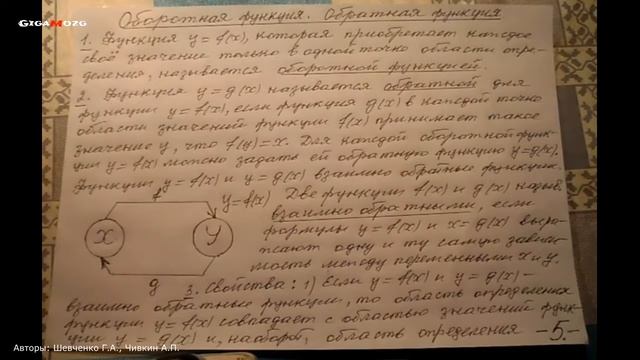 GIGAMOZG
Оборотная функция. Обратная функция
1. Функция y = f(x), которая приобретает каждое
своё значение только в одной точке области опре-
деления, называется оборотной функцией.
2. Функция y = g(x) называется обратной для
функции y = f(x), если функция g(x) в каждой точке
области значений функции f(x) принимает такое
значение y, что f(y) = x. Для каждой оборотной функ-
ции y = f(x) можно задать ей обратную функцию y = g(x).
Функции y = f(x) и y = g(x) взаимно обратные функции.
f
y = f(x)
X
У
g
Две функции f(x) и g(x) назыв.
взаимно обратными, если
формулы y = f(x) и x = g(x) выра-
жают одну и ту самую зависи-
мость между переменными x и y.
3. Свойства: 1) Если y = f(x) и y = g(x) -
взаимно обратные функции, то область определения
функции y = f(x) совпадает с областью значений функ-
ции y = g(x) и, наоборот, область определения
-5.-
Авторы: Шевченко Г.А., Чивкин А.П.